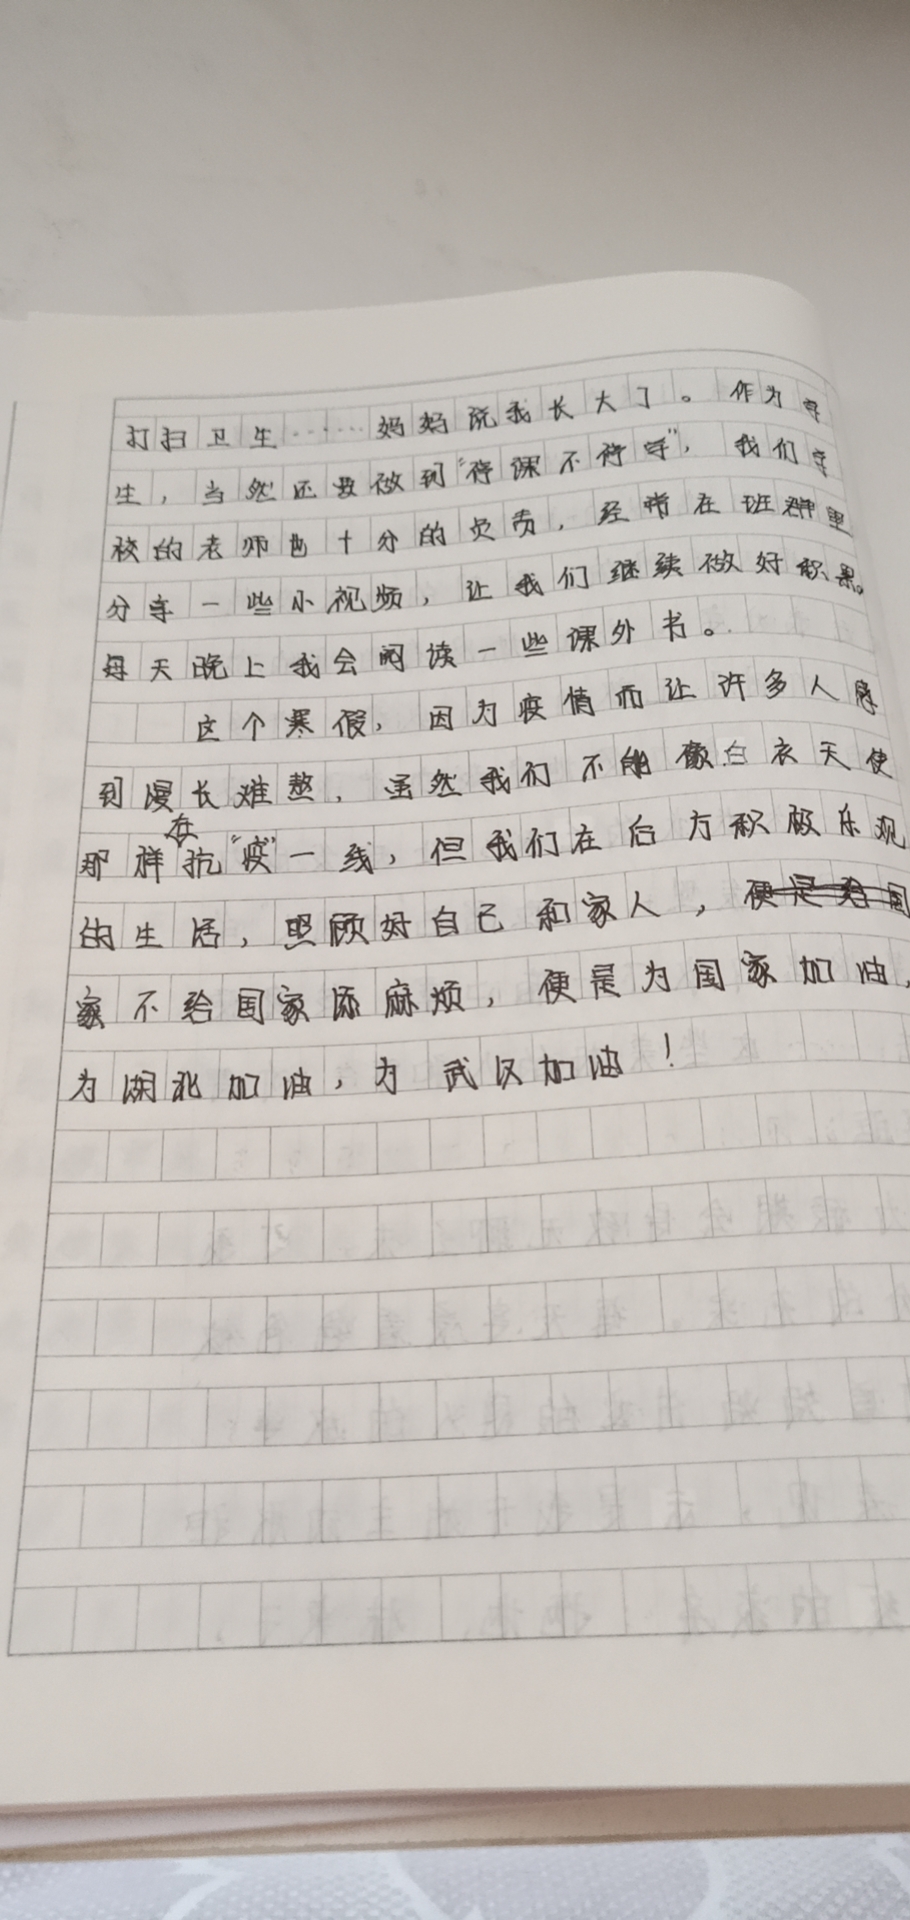 打扫卫生……妈妈说我长大了。作为学
生，当然还要做到“停课不停学”，我们学
校的老师也十分的负责，经常在班群里
分享一些小视频，让我们继续做好积累。
每天晚上我会阅读一些课外书。
这个寒假，因为疫情而让许多人感
到漫长难熬，虽然我们不能像白衣天使
那样在抗“疫”一线，但我们在后方积极乐观
的生活，照顾好自己和家人，便是给国
家不给国家添麻烦，便是为国家加油，
为湖北加油，为武汉加油！